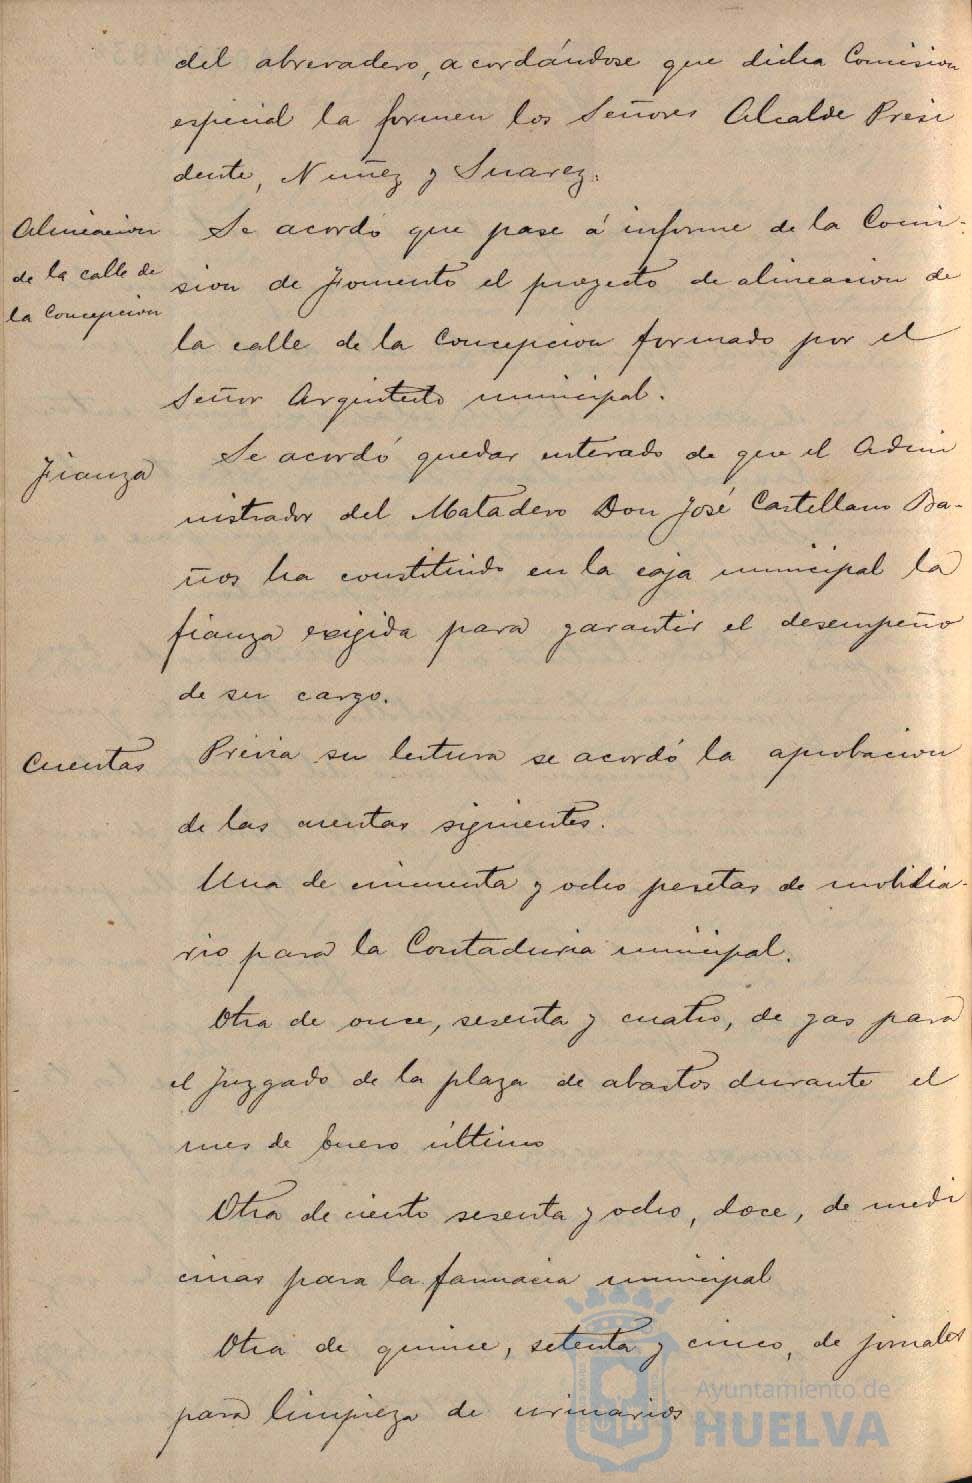 del abrevadero, acordándose que dicha Comision
especial la formen los Señores Alcalde Presi
dente, Nuñez y Suarez.
Alineacion
de la calle de
la Concepcion
Se acordó que pase á informe de la Comi-
sion de Fomento el proyecto de alineacion de
la calle de la Concepcion formado por el
Señor Arquitecto municipal.
Fianza
Se acordó quedar enterado de que el Admi
nistrador del Matadero Don José Castellano Ba-
ños ha constituido en la caja municipal la
fianza exigida para garantir el desempeño
de su cargo.
Cuentas
Prévia su lectura se acordó la aprobacion
de las cuentas siguientes.
Una de cincuenta y ocho pesetas de mobilia-
rio para la Contaduria municipal.
Otra de once, sesenta y cuatro, de gas para
el Juzgado de la plaza de abastos durante el
mes de Enero último
Otra de ciento sesenta y ocho, doce, de medi
cinas para la farmacia municipal
Otra de quince, setenta y cinco, de jornales
para limpieza de urinarios
Ayuntamiento de
HUELVA